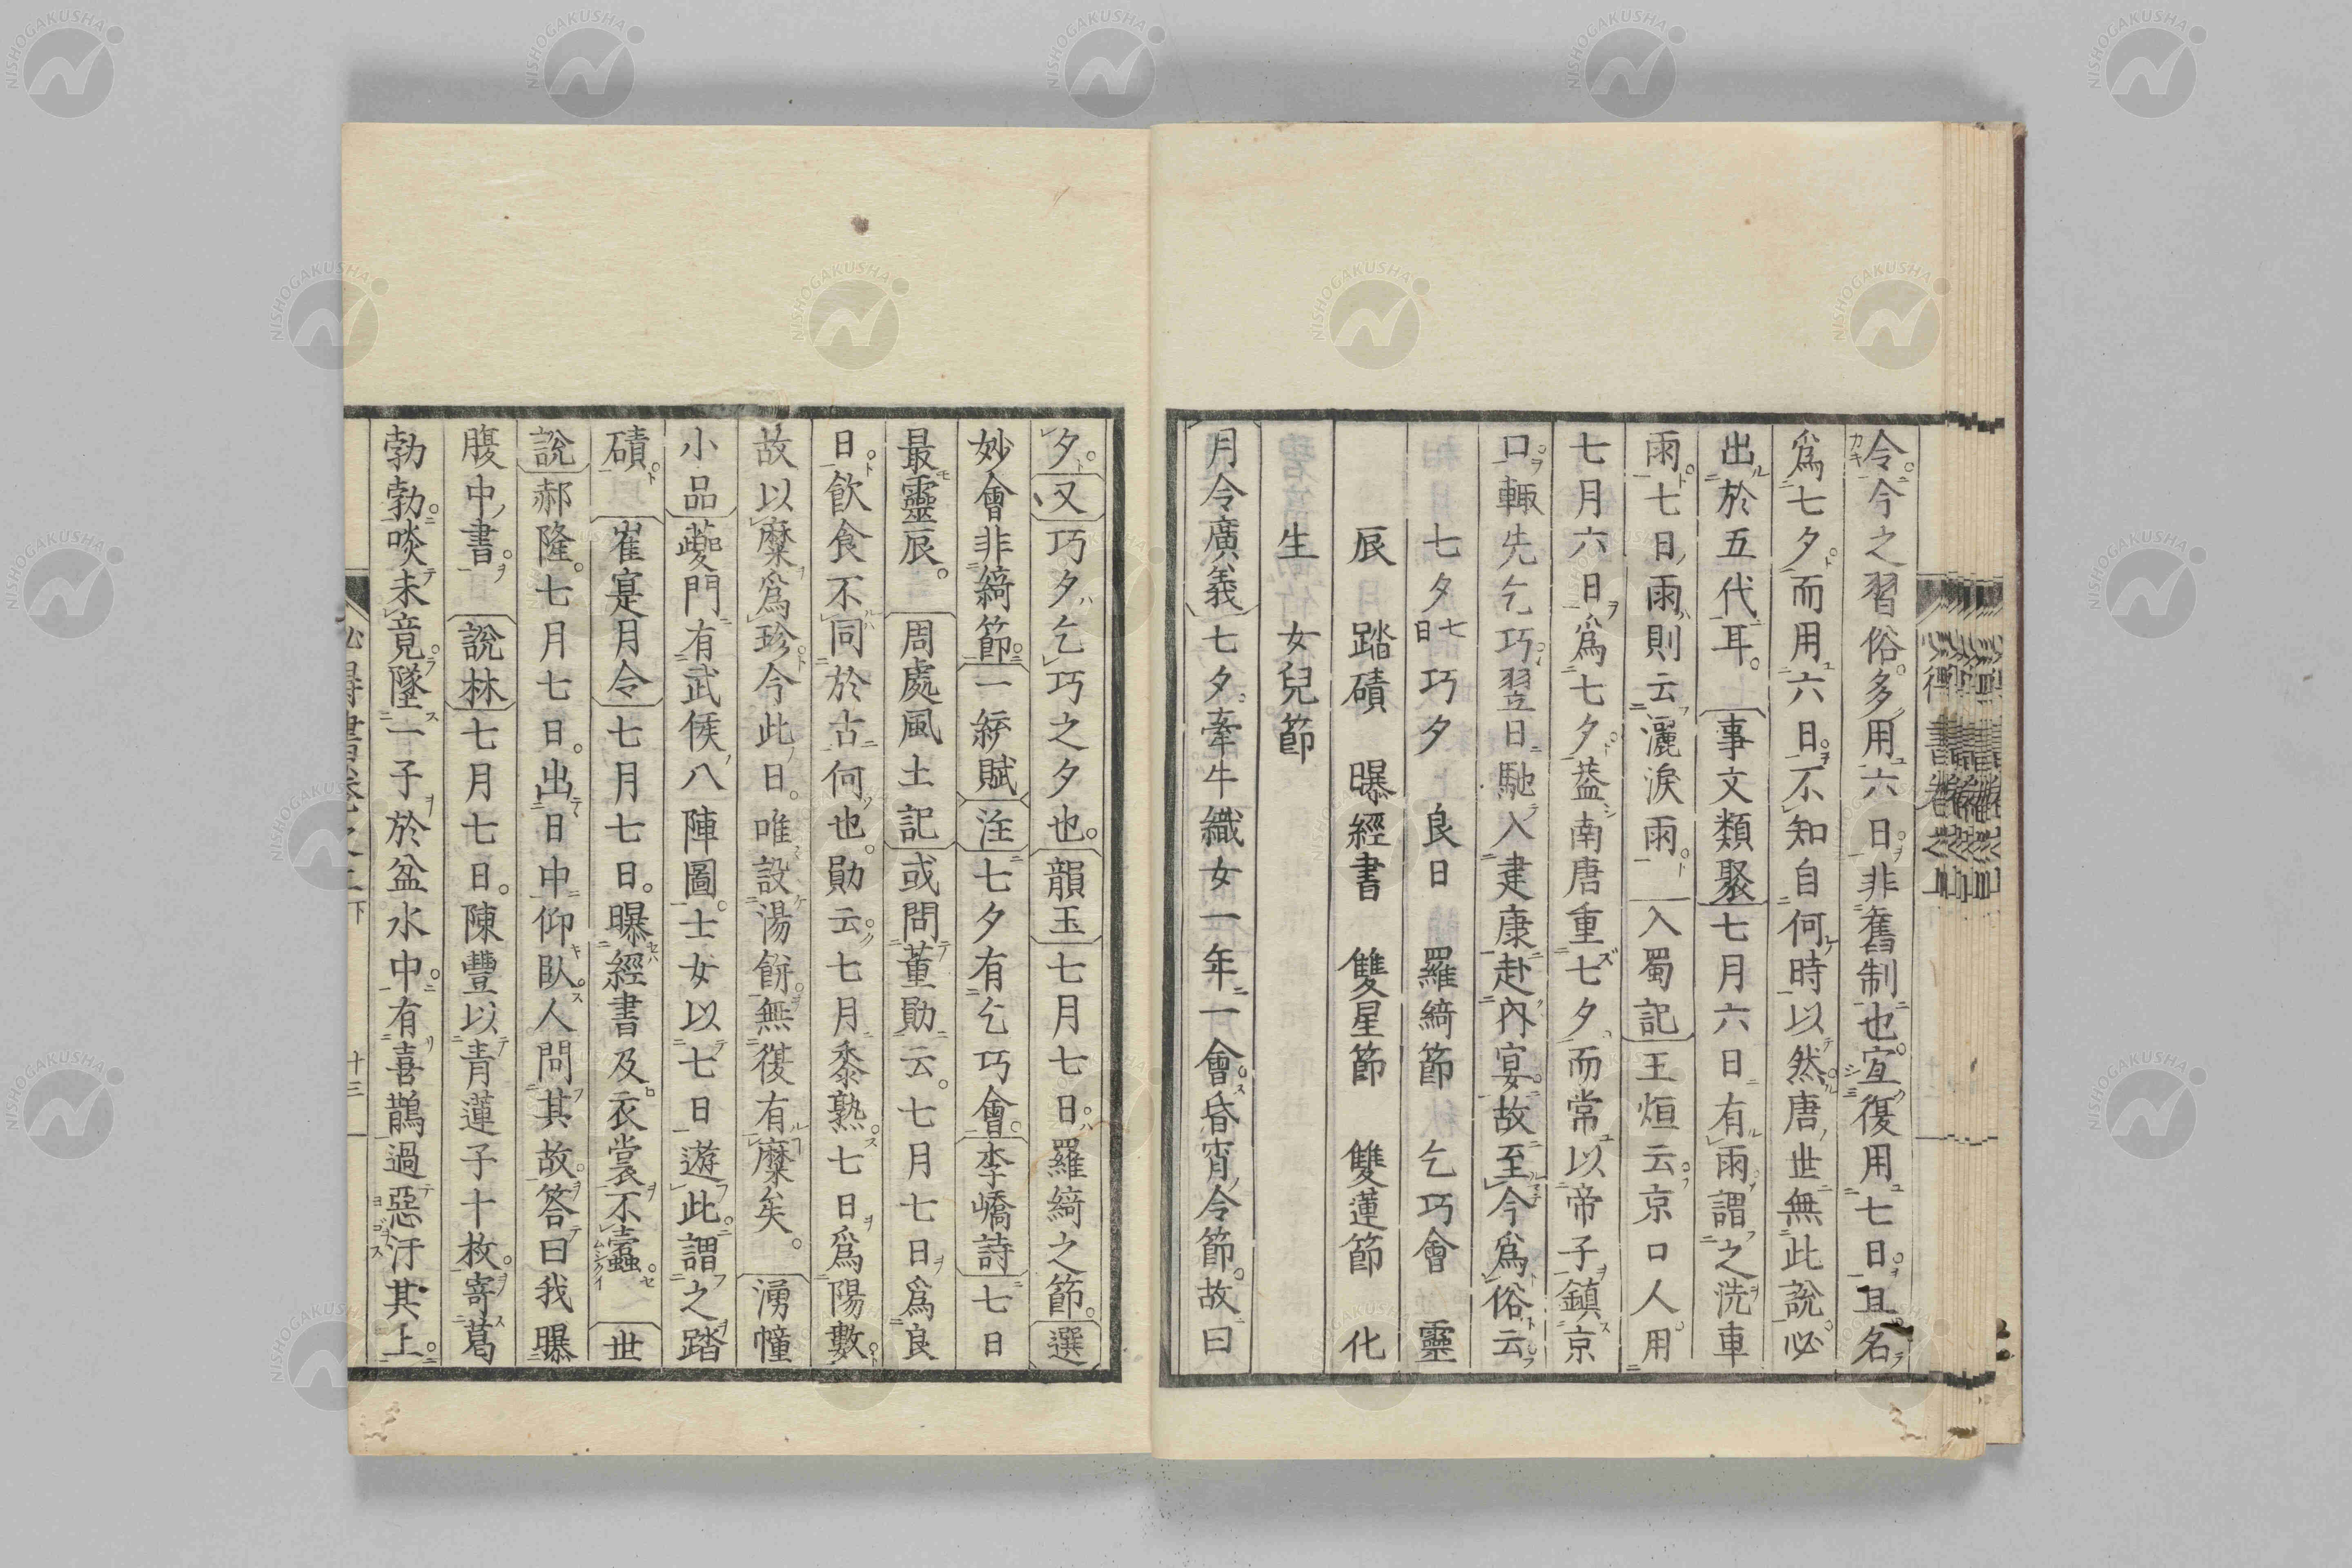 令今之習俗多用六日非舊制也宜復用七日且名
爲七夕而用六日不知自何時以然唐世無此說必
出於五代耳事文類聚七月六日有雨謂之洗車
雨七日雨則云灑淚雨入蜀記王烜云京口人用
七月六日爲七夕葢南唐重七夕而常以帝子鎮京
口輙先乞巧翌日馳入建康赴內宴故至今爲俗云
七夕七日巧夕 良日 羅綺節 乞巧會 靈
辰 踏磧 曝經書 雙星節 雙蓮節 化
生 女兒節
月令廣義七夕牽牛織女一年一會昏宵令節故曰
夕又巧夕乞巧之夕也韻玉七月七日羅綺之節選
妙會非綺節一綵賦注七夕有乞巧會李嶠詩七日
最靈辰周處風土記或問董勛云七月七日爲良
日飮食不同於古何也勛云七月黍熟七日爲陽數
故以糜爲珍今此日唯設湯餅無復有糜矣湧幢
小品夔門有武侯八陣圖士女以七日遊此謂之踏
磧崔寔月令七月七日曝經書及衣裳不蠹世
說郝隆七月七日出日中仰臥人問其故答曰我曝
腹中書說林七月七日陳豐以青蓮子十枚寄葛
勃勃啖未竟墜一子於盆水中有喜鵲過惡汙其上
十三
NISHOGAKUSHA